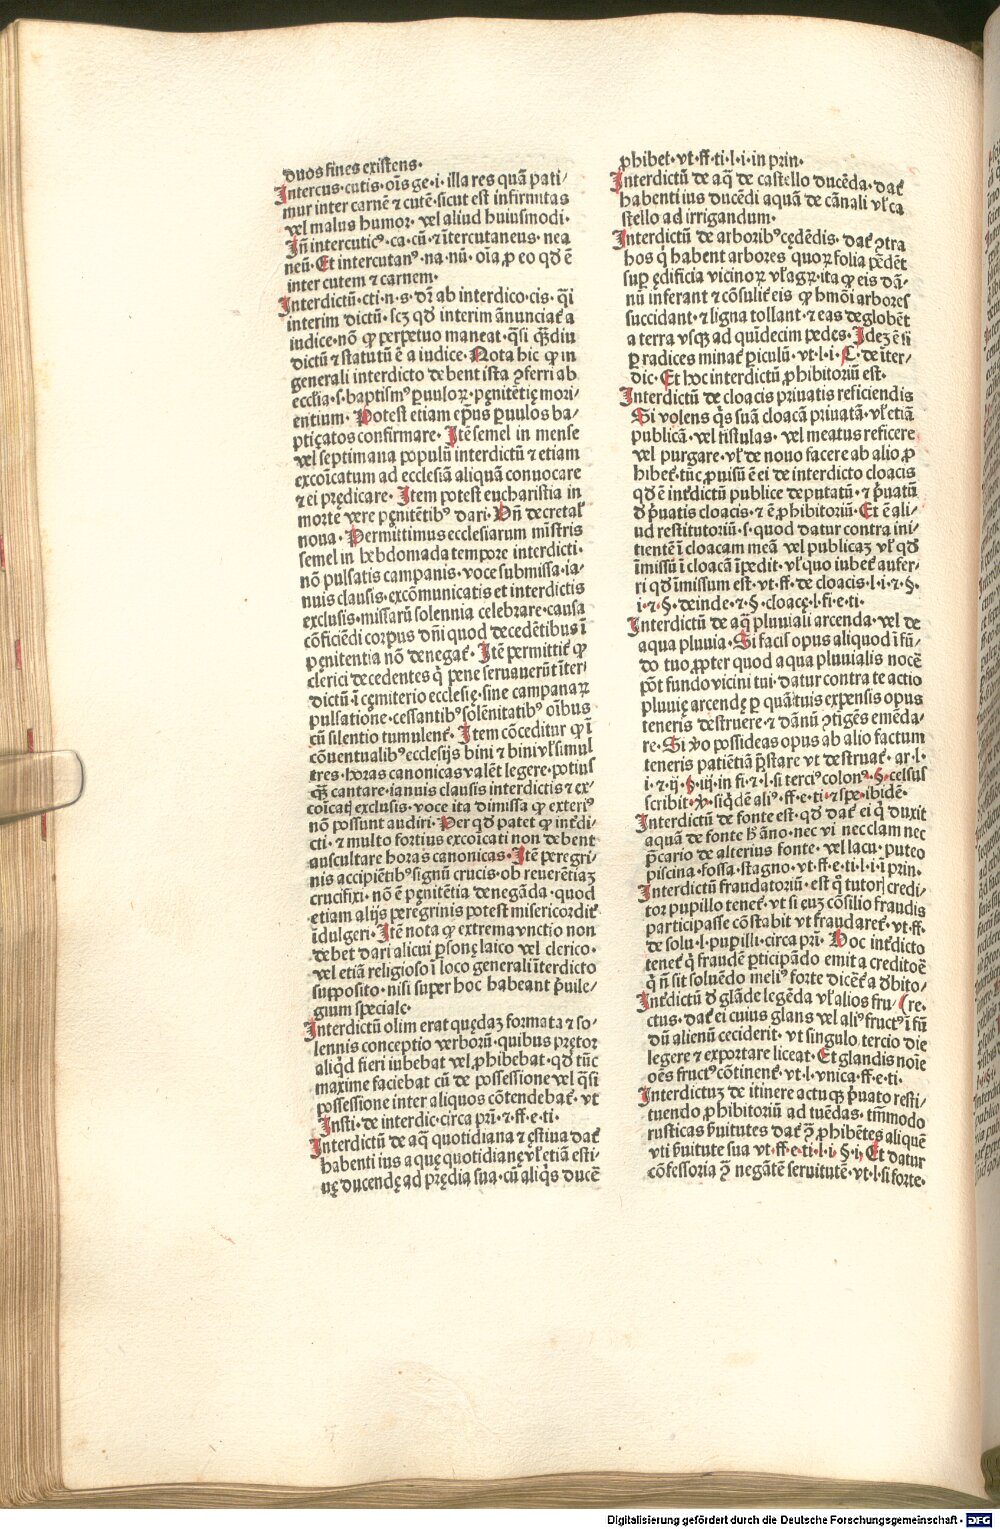 duos fines existens.
Intercus·cutis·oīs ge·i·illa res quā pati/
mur inter carnē ⁊ cutē·sicut est infirmitas
vel malus humor·vel aliud huiusmodi·
Iñ intercuticꝰ·ca·cū·⁊ ītercutaneus·nea
neū·Et intercutanꝰ·na·nū·oīa ꝓ eo qď ē
inter cutem ⁊ carnem·
Interdictū·cti·n·s·dr̄ ab interdico·cis·q̄i
interim dictū·scꝫ qď interim ānunciat̄ a
iudice·nō ꝙ perpetuo maneat·q̄si q̄diu
dictū ⁊ statutū ē a iudice·Nota hic ꝙ in
generali interdicto debent ista ꝯferri ab
ecclīa·s·baptismꝰ ꝑuuloꝝ·pęnitētię mori/
entium·Potest etiam ep̄us ꝑuulos ba/
ptiçatos confirmare·Itē semel in mense
vel septimana populū interdictū ⁊ etiam
excoīcatum ad ecclesiā aliquā conuocare
⁊ ei prędicare·Item potest eucharistia in
morte vere pęnitētibꝰ dari·Vñ decretał
noua·Permittimus ecclesiarum mīstris
semel in hebdomada tempore interdicti·
nō pulsatis campanis·voce submissa·ia/
nuis clausis·excōmunicatis et interdictis
exclusis·missarū solennia celebrare·causa
cōficiēdi corpus dn̄i quod decedētibus ī
pęnitentia nō denegat̄·Itē permittit̄ ꝙ
clerici decedentes q̇ pene seruauerūt īter/
dictū ī cęmiterio ecclesię·sine campanaꝝ
pulsatione·cessantibꝰ solēnitatibꝰ oībus
cū silentio tumulent̄·Item cōceditur ꝙ ī
cōuentualibꝰ ecclesijs bini ⁊ bini vł simul
tres·horas canonicas valēt legere·potius
q̄ȝ cantare·ianuis clausis interdictis ⁊ ex/
coīcatį exclusis·voce ita dimissa ꝙ exteriꝰ
nō possunt audiri·Per qď patet ꝙ int̄di
cti·⁊ multo fortius excoīcati non debent
auscultare horas canonicas·Itē peregri/
nis accipiētibꝰ signū crucis·ob reuerētiaꝫ
crucifixi·nō ē pęnitētia denegāda·quod
etiam alijs peregrinis potest misericordit̄
īdulgeri·Itē nota ꝙ extrema vnctio non
debet dari alicui psonę laico vel clerico·
vel etiā religioso ī loco generali īterdicto
supposito·nisi super hoc habeant ṗuile/
gium speciale·
Interdictū olim erat quędaꝫ formata ⁊ so/
lennis conceptio verborū·quibus prętor
aliq̇d fieri iubebat vel ꝓhibebat·qď tūc
maxime faciebat cū de possessione vel q̄si
possessione inter aliquos cōtendebat̄·vt
Insti·de interdic·circa prī·⁊ ff·e·ti·
Interdictū de aq̄ quotidiana ⁊ ęstiua dat̄
habenti ius aquę quotidianę vł etiā esti/
uę ducendę ad prędia sua·cū aliq̇s ducē
ꝓhibet·vt·ff·ti·l·i·in prin·
Interdictū de aq̄ de castello ducēda·dat̄
habenti ius ducēdi aquā de cānali vł ca
stello ad irrigandum·
Interdictū de arboribꝰ cędēdis·dat̄ ꝯtra
hos q̇ habent arbores quoꝝ folia pēdēt
suꝑ ędificia vicinoꝝ vł agꝝ·ita ꝙ eis dā/
nū inferant ⁊ cōsulit̄ eis ꝙ hmōi arbores
succidant·⁊ ligna tollant·⁊ eas deglobēt
a terra vsqꝫ ad quīdecim pedes·Ideꝫ ē si
ꝑ radices minat̄ ꝑiculū·vt·l·i·C·de īter/
dic·Et hoc interdictū ꝓhibitoriū est·
Interdictū de cloacis priuatis reficiendis
Si volens q̇s suā cloacā priuatā·vł etiā
publicā·vel fistulas·vel meatus reficere
vel purgare·vł de nouo facere ab alio ꝓ
hibet̄·tūc ꝓuisū ē ei de interdicto cloacis
qď ē int̄dictū publice deputatū·⁊ ṗuatū
ď ṗuatis cloacis·⁊ ē ꝓhibitoriū·Et ē ali/
ud restitutoriū·s·quod datur contra ini/
tientē ī cloacam meā vel publicaꝫ vł qď
īmissū ī cloacā īpedit·vł quo iubet̄ aufer/
ri qď īmissum est·vt·ff·de cloacis·l·i·⁊·§·
i·⁊·§·deinde·⁊·§·cloacę·l·fi·e·ti·
Interdictū de aq̄ pluuiali arcenda·vel de
aqua pluuia·Si facis opus aliquod ī fū/
do tuo ꝓpter quod aqua pluuialis nocē
pōt fundo vicini tui·datur contra te actio
pluuię arcendę ꝑ quā tuis expensis opus
teneris destruere·⁊ dānū ꝯtigēs emēda/
re·Si ꝟo possideas opus ab alio factum
teneris patiētiā p̄stare vt destruat̄·ar·l·
i·⁊·ij·§·iij·in fi·⁊·l·si terciꝰ colonꝰ·§·celsus
scribit·ꝟ·siq̇dē aliꝰ·ff·e·ti·⁊ spe·ibidē·
Interdictū de fonte est·qď dat̄ ei q̇ duxit
aquā de fonte h̄ āno·nec vi nec clam nec
p̄cario de alterius fonte·vel lacu·puteo
piscina·fossa·stagno·vt·ff·e·ti·l·i·ī prin·
Interdictū fraudatoriū·est q̇ tutor credi/
tor pupillo tenet̄·vt si euꝫ cōsilio fraudis
participasse cōstabit vt fraudaret̄·vt·ff·
de solu·l·pupilli·circa prī·Hoc int̄dicto
tenet̄ q̇ fraudē ꝑticipādo emit a creditoē
q̇ ñ sit soluēdo meliꝰ forte dicēt̄ a ďbito/
Int̄dictū ď glāde legēda vł alios fru/ (re·
ctus·dat̄ ei cuius glans vel aliꝰ fructꝰ ī fū
dū alienū ceciderit·vt singulo tercio die
legere ⁊ exportare liceat·Et glandis noīe
oēs fructꝰ cōtinent̄·vt·l·vnica·ff·e·ti·
Interdictuꝫ de itinere actuqꝫ ṗuato resti/
tuendo ꝓhibitoriū ad tuēdas·tm̄modo
rusticas ṗuitutes dat̄ ꝯ̄ ꝓhibētes aliquē
vti ṗuitute sua vt·ff·e·ti·l·i·§·i·Et datur
cōfessoria ꝯ̄ negātē seruitutē·vt·l·si forte·
Digitalisierung gefördert durch die Deutsche Forschungsgemeinschaft - DFG